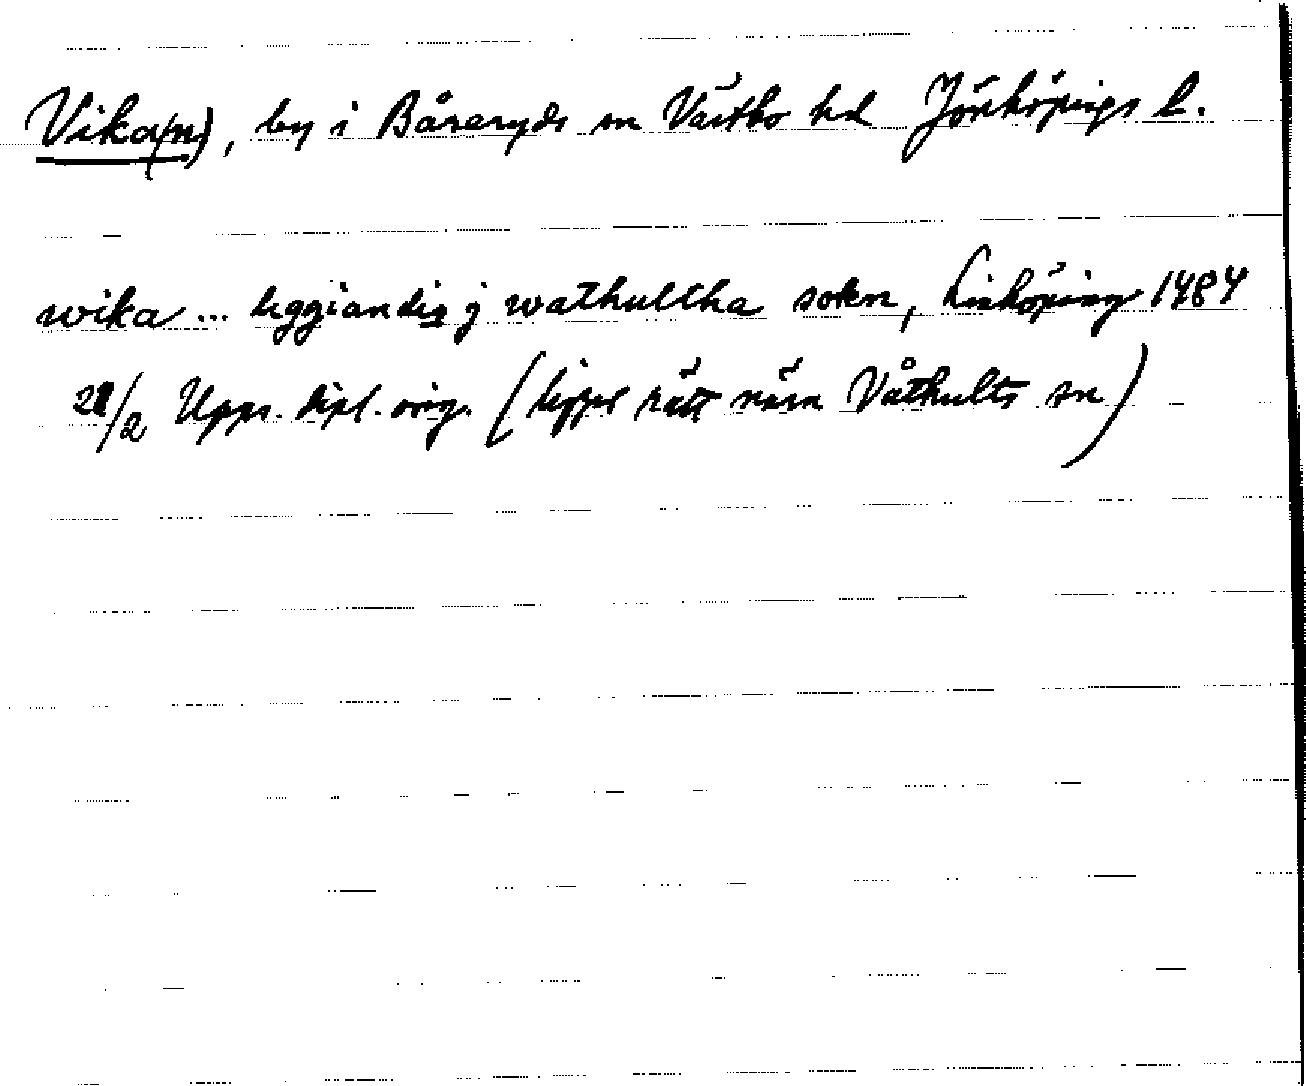 Vika(n), by i Båraryds sn Västbo hd Jönköpings l.
wika ... liggiandis j wathultha sokn, Linköping 1484
21/2 Upps. dipl. orig. (ligger rätt nära Våthults sn)